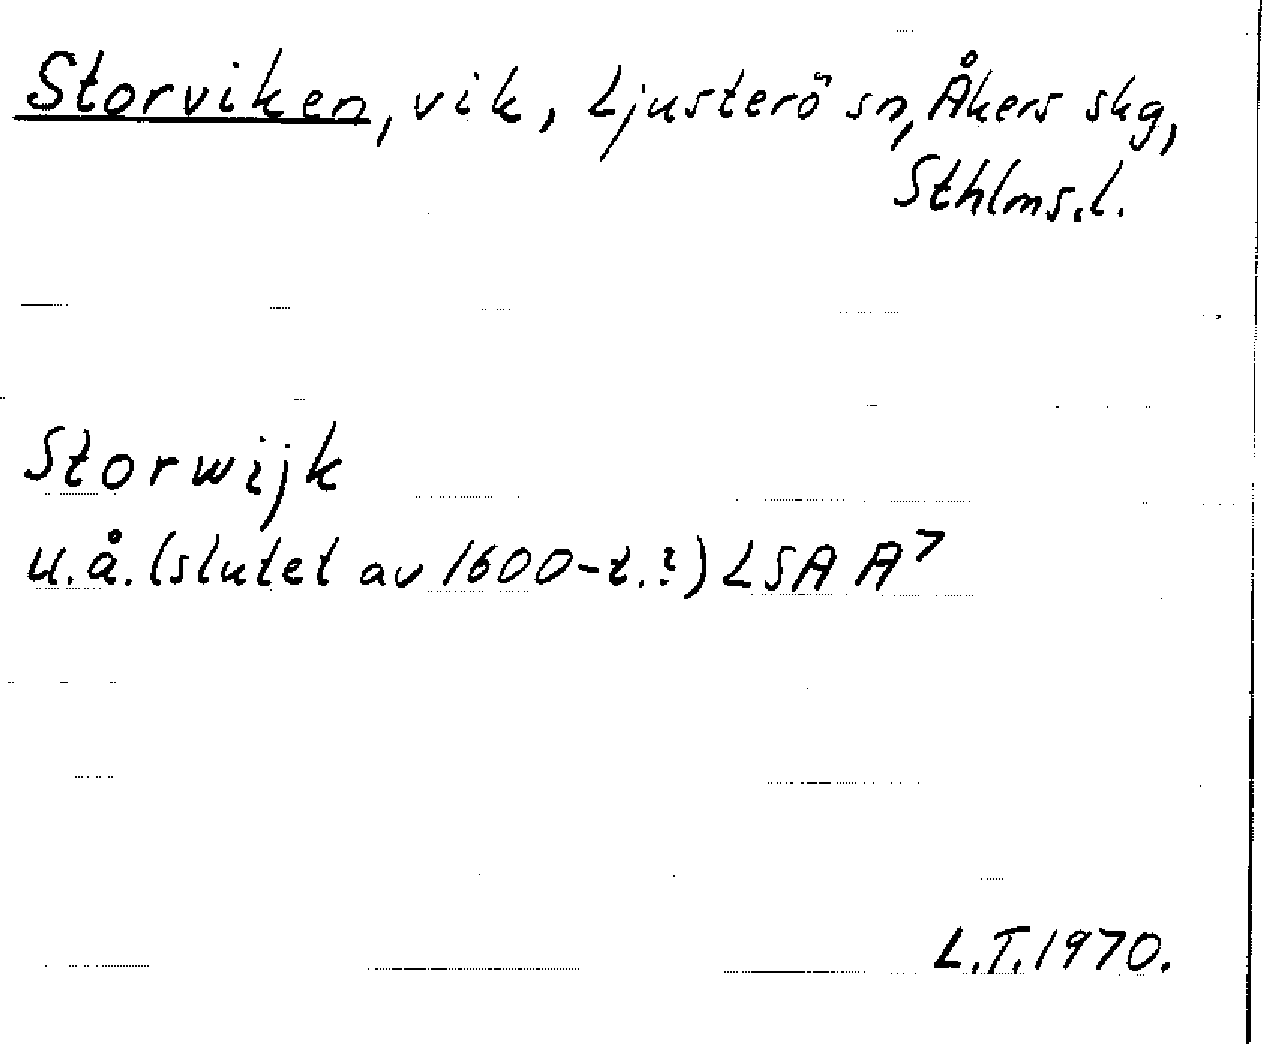 Storviken, vik, Ljusterö sn, Åkers skg,
Sthlms. l.
Storwijk
u.å. (slutet av 1600-t.?) LSA A⁷
L.T. 1970.